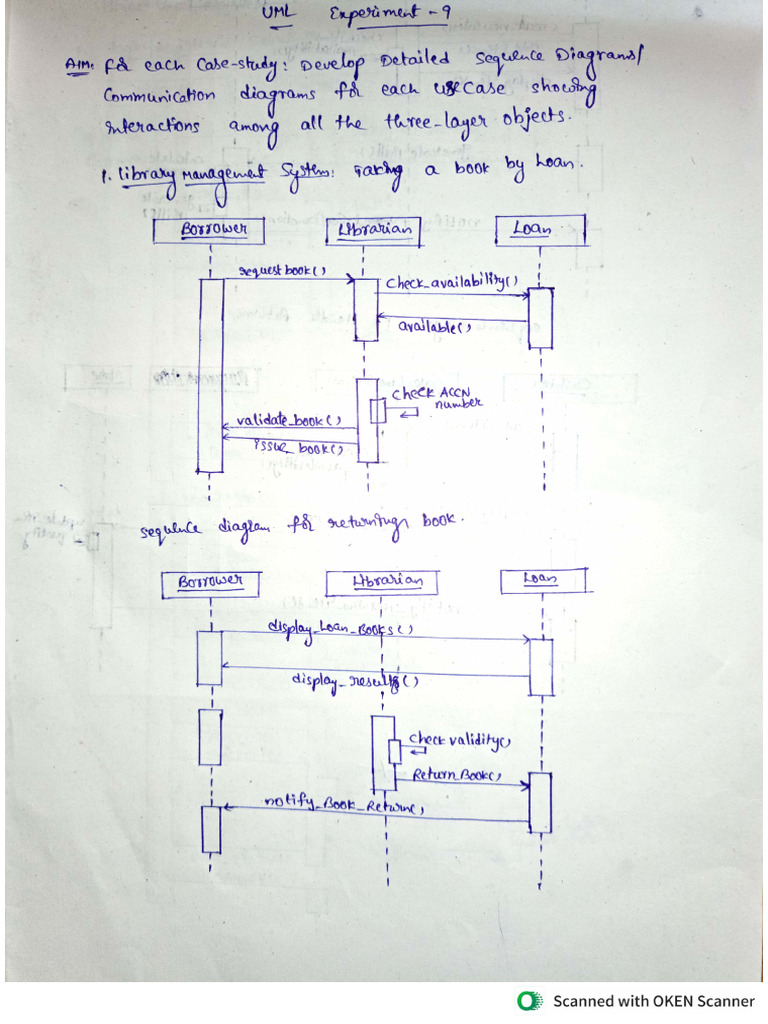 UML Experiment - 9
AIM: For each Case-study: Develop Detailed Sequence Diagrams/
Communication diagrams for each usecase showing
interactions among all the three-layer objects.
1. Library Management System: Taking a book by Loan.
Borrower Librarian Loan
requestbook()
check_availability()
available()
check ACCN
number
validate_book()
issue_book()
sequence diagram for returning book.
Borrower Librarian Loan
display_Loan_Books()
display_results()
check validity()
Return Book()
notify_Book_Return()
Scanned with OKEN Scanner